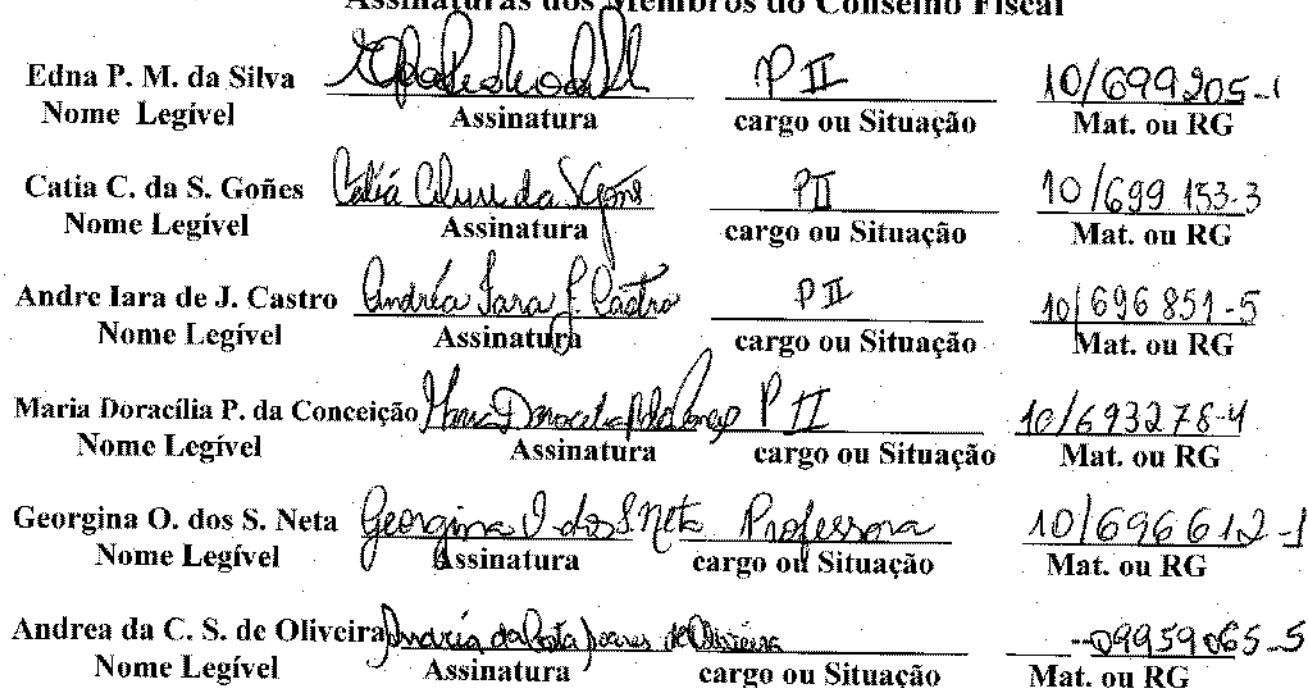 Assinaturas dos Membros do Conselho Fiscal
Edna P. M. da Silva P II 10/699205-1
Nome Legível Assinatura cargo ou Situação Mat. ou RG
Catia C. da S. Goñes Catiá da S Goms PII 10/699 153-3
Nome Legível Assinatura cargo ou Situação Mat. ou RG
Andre Iara de J. Castro Andréa Iara J. Castro P II 10/696 851-5
Nome Legível Assinatura cargo ou Situação Mat. ou RG
Maria Doracília P. da Conceição Maria P II 10/693278-4
Nome Legível Assinatura cargo ou Situação Mat. ou RG
Georgina O. dos S. Neta Georgina O. dos S. Neta Professora 10/696612-1
Nome Legível Assinatura cargo ou Situação Mat. ou RG
Andrea da C. S. de Oliveira Andréia da Costa Soares de Oliveira 09959065-5
Nome Legível Assinatura cargo ou Situação Mat. ou RG